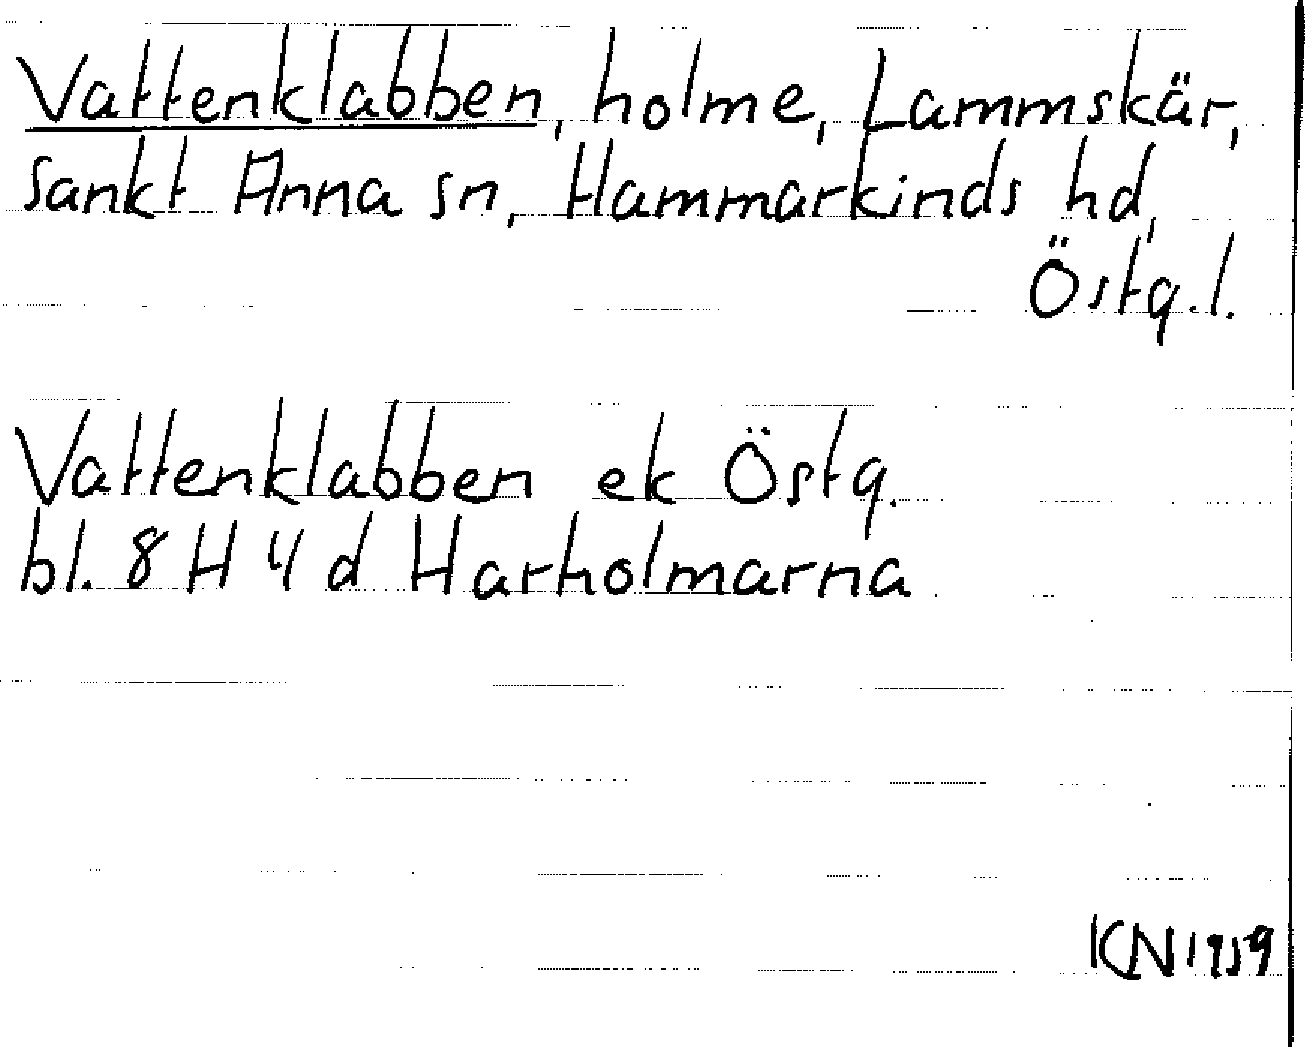 Vattenklabben, holme, Lammskär,
Sankt Anna sn, Hammarkinds hd,
Östg.l.
Vattenklabben ek Östg.
bl. 8 H 4 d Harholmarna
KN 1959